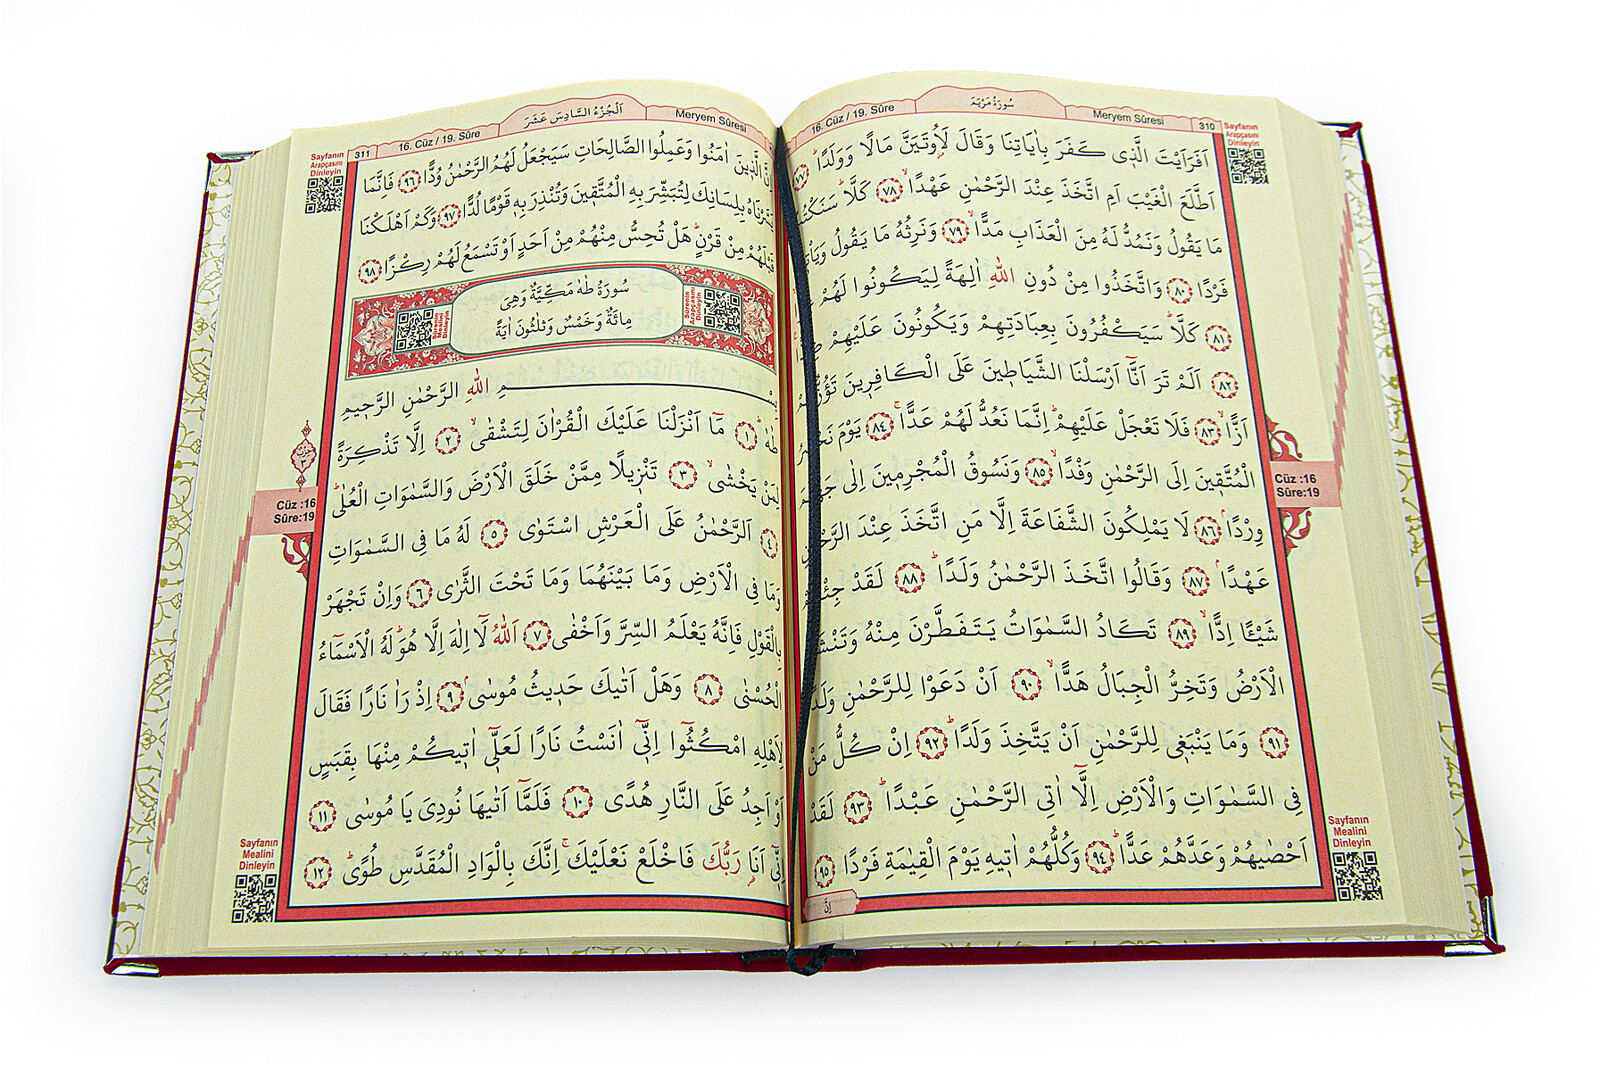 16. Cüz / 19. Sûre سُورَةُ مَرْيَمَ Meryem Sûresi 310
Sayfanın
Arapçasını
Dinleyin
اَفَرَاَيْتَ الَّذ۪ى كَفَرَ بِاٰيَاتِنَا وَقَالَ لَاُوتَيَنَّ مَالًا وَوَلَدًاۜ ﴿٧٧﴾
اَطَّلَعَ الْغَيْبَ اَمِ اتَّخَذَ عِنْدَ الرَّحْمٰنِ عَهْدًاۙ ﴿٧٨﴾ كَلَّاۜ سَنَكْتُبُ
مَا يَقُولُ وَنَمُدُّ لَهُ مِنَ الْعَذَابِ مَدًّاۙ ﴿٧٩﴾ وَنَرِثُهُ مَا يَقُولُ
فَرْدًا ﴿٨٠﴾ وَاتَّخَذُوا مِنْ دُونِ اللّٰهِ اٰلِهَةً لِيَكُونُوا لَهُمْ
﴿٨١﴾ كَلَّاۜ سَيَكْفُرُونَ بِعِبَادَتِهِمْ وَيَكُونُونَ عَلَيْهِمْ
﴿٨٢﴾ اَلَمْ تَرَ اَنَّٓا اَرْسَلْنَا الشَّيَاط۪ينَ عَلَى الْكَافِر۪ينَ تَؤُزُّهُمْ
اَزًّاۙ ﴿٨٣﴾ فَلَا تَعْجَلْ عَلَيْهِمْۜ اِنَّمَا نَعُدُّ لَهُمْ عَدًّاۚ ﴿٨٤﴾ يَوْمَ نَحْشُرُ
الْمُتَّق۪ينَ اِلَى الرَّحْمٰنِ وَفْدًاۙ ﴿٨٥﴾ وَنَسُوقُ الْمُجْرِم۪ينَ اِلٰى جَهَنَّمَ
وِرْدًاۢ ﴿٨٦﴾ لَا يَمْلِكُونَ الشَّفَاعَةَ اِلَّا مَنِ اتَّخَذَ عِنْدَ الرَّحْمٰنِ
عَهْدًاۢ ﴿٨٧﴾ وَقَالُوا اتَّخَذَ الرَّحْمٰنُ وَلَدًاۜ ﴿٨٨﴾ لَقَدْ جِئْتُمْ
شَيْـًٔا اِدًّاۙ ﴿٨٩﴾ تَكَادُ السَّمٰوَاتُ يَتَفَطَّرْنَ مِنْهُ وَتَنْشَقُّ
الْاَرْضُ وَتَخِرُّ الْجِبَالُ هَدًّاۙ ﴿٩٠﴾ اَنْ دَعَوْا لِلرَّحْمٰنِ وَلَدًا
﴿٩١﴾ وَمَا يَنْبَغ۪ى لِلرَّحْمٰنِ اَنْ يَتَّخِذَ وَلَدًاۜ ﴿٩٢﴾ اِنْ كُلُّ مَنْ
فِى السَّمٰوَاتِ وَالْاَرْضِ اِلَّٓا اٰتِى الرَّحْمٰنِ عَبْدًاۜ ﴿٩٣﴾ لَقَدْ
اَحْصٰيهُمْ وَعَدَّهُمْ عَدًّاۜ ﴿٩٤﴾ وَكُلُّهُمْ اٰت۪يهِ يَوْمَ الْقِيٰمَةِ فَرْدًا ﴿٩٥﴾
اِنَّ
Cüz :16
Sûre:19
Sayfanın
Mealini
Dinleyin
311 16. Cüz / 19. Sûre اَلْجُزْءُ السَّادِسَ عَشَرَ Meryem Sûresi
Sayfanın
Arapçasını
Dinleyin
اِنَّ الَّذ۪ينَ اٰمَنُوا وَعَمِلُوا الصَّالِحَاتِ سَيَجْعَلُ لَهُمُ الرَّحْمٰنُ وُدًّا ﴿٩٦﴾ فَاِنَّمَا
يَسَّرْنَاهُ بِلِسَانِكَ لِتُبَشِّرَ بِهِ الْمُتَّق۪ينَ وَتُنْذِرَ بِه۪ قَوْمًا لُدًّا ﴿٩٧﴾ وَكَمْ اَهْلَكْنَا
قَبْلَهُمْ مِنْ قَرْنٍۜ هَلْ تُحِسُّ مِنْهُمْ مِنْ اَحَدٍ اَوْ تَسْمَعُ لَهُمْ رِكْزًا ﴿٩٨﴾
سُورَةُ طٰهٰ مَكِّيَّةٌ وَهِىَ
مِائَةٌ وَخَمْسٌ وَثَلٰثُونَ اٰيَةً
Sûrenin
Arapçasını
Dinleyin
Sûrenin
Mealini
Dinleyin
بِسْمِ اللّٰهِ الرَّحْمٰنِ الرَّح۪يمِ
طٰهٰۜ ﴿١﴾ مَٓا اَنْزَلْنَا عَلَيْكَ الْقُرْاٰنَ لِتَشْقٰىۙ ﴿٢﴾ اِلَّا تَذْكِرَةً
لِمَنْ يَخْشٰىۙ ﴿٣﴾ تَنْز۪يلًا مِمَّنْ خَلَقَ الْاَرْضَ وَالسَّمٰوَاتِ الْعُلٰىۜ
﴿٤﴾ اَلرَّحْمٰنُ عَلَى الْعَرْشِ اسْتَوٰى ﴿٥﴾ لَهُ مَا فِى السَّمٰوَاتِ
وَمَا فِى الْاَرْضِ وَمَا بَيْنَهُمَا وَمَا تَحْتَ الثَّرٰى ﴿٦﴾ وَاِنْ تَجْهَرْ
بِالْقَوْلِ فَاِنَّهُ يَعْلَمُ السِّرَّ وَاَخْفٰى ﴿٧﴾ اَللّٰهُ لَٓا اِلٰهَ اِلَّا هُوَۜ لَهُ الْاَسْمَٓاءُ
الْحُسْنٰى ﴿٨﴾ وَهَلْ اَتٰيكَ حَد۪يثُ مُوسٰىۢ ﴿٩﴾ اِذْ رَاٰ نَارًا فَقَالَ
لِاَهْلِهِ امْكُثُٓوا اِنّ۪ٓى اٰنَسْتُ نَارًا لَعَلّ۪ٓى اٰت۪يكُمْ مِنْهَا بِقَبَسٍ
اَوْ اَجِدُ عَلَى النَّارِ هُدًى ﴿١٠﴾ فَلَمَّٓا اَتٰيهَا نُودِىَ يَا مُوسٰى ﴿١١﴾
اِنّ۪ٓى اَنَا رَبُّكَ فَاخْلَعْ نَعْلَيْكَۚ اِنَّكَ بِالْوَادِ الْمُقَدَّسِ طُوًىۜ ﴿١٢﴾
Cüz :16
Sûre:19
Sayfanın
Mealini
Dinleyin